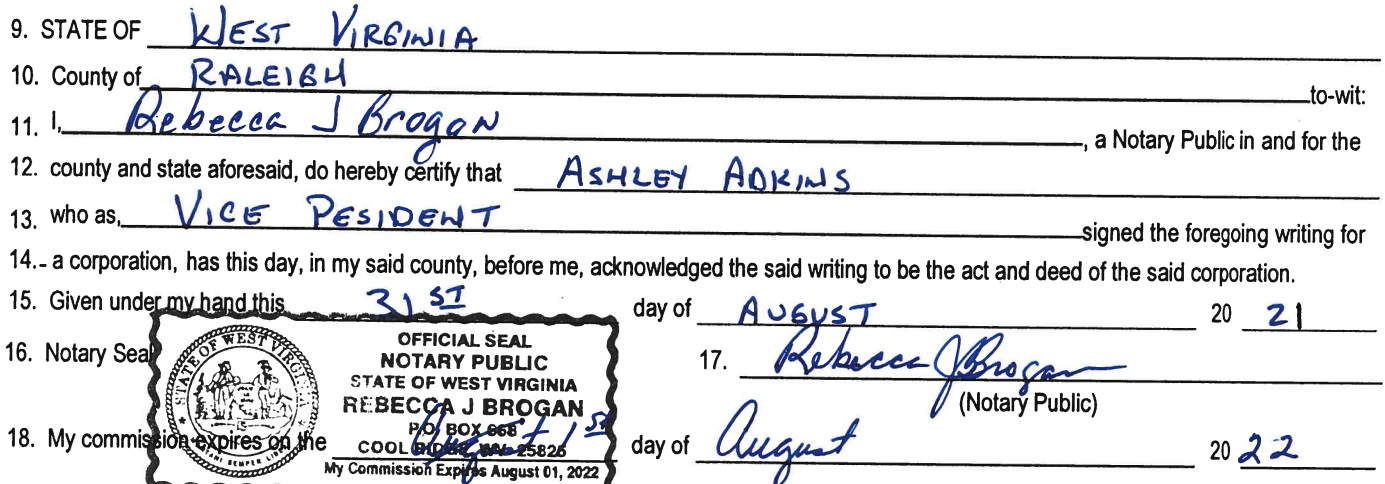 9. STATE OF WEST VIRGINIA
10. County of RALEIGH to-wit:
11. I, Rebecca J Brogan, a Notary Public in and for the
12. county and state aforesaid, do hereby certify that ASHLEY ADKINS
13. who as, VICE PESIDENT signed the foregoing writing for
14. - a corporation, has this day, in my said county, before me, acknowledged the said writing to be the act and deed of the said corporation.
15. Given under my hand this 31ST day of AUGUST 20 21
16. Notary Seal
STATE OF WEST VIRGINIA
SEMPER
OFFICIAL SEAL
NOTARY PUBLIC
STATE OF WEST VIRGINIA
REBECCA J BROGAN
P.O. BOX 668
COOL WV 25826
My Commission Expires August 01, 2022
17. Rebecca J Brogan
(Notary Public)
18. My commission expires on the August 1st day of August 20 22